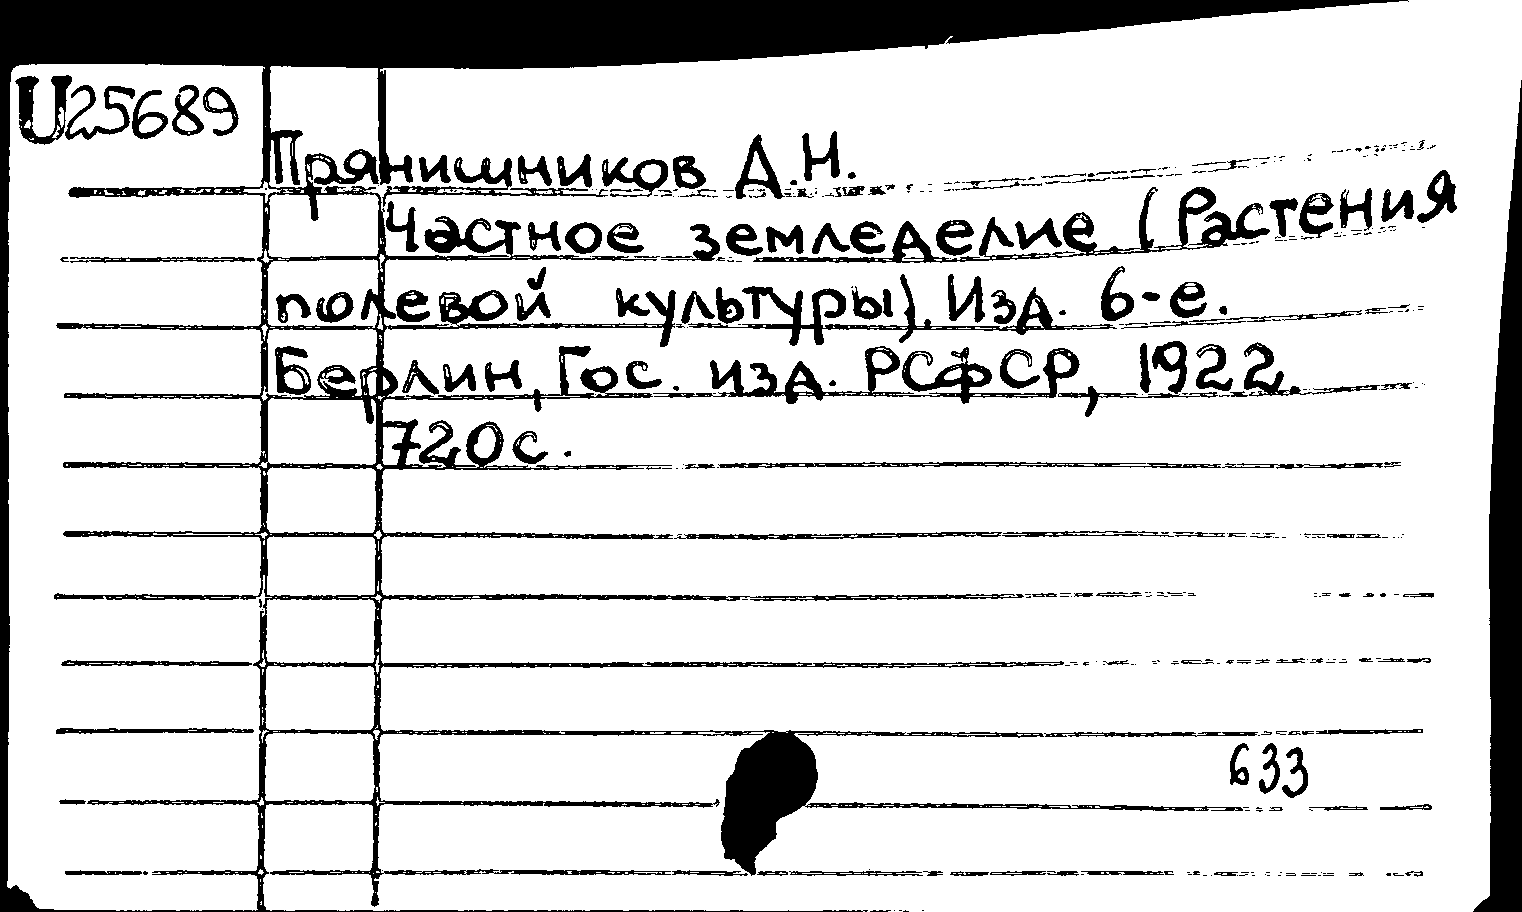 U25689
Прянишников Д.Н.
Частное земледелие. (Растения
полевой культуры). Изд. 6-е.
Берлин, Гос. изд. РСФСР, 1922.
720с.
633